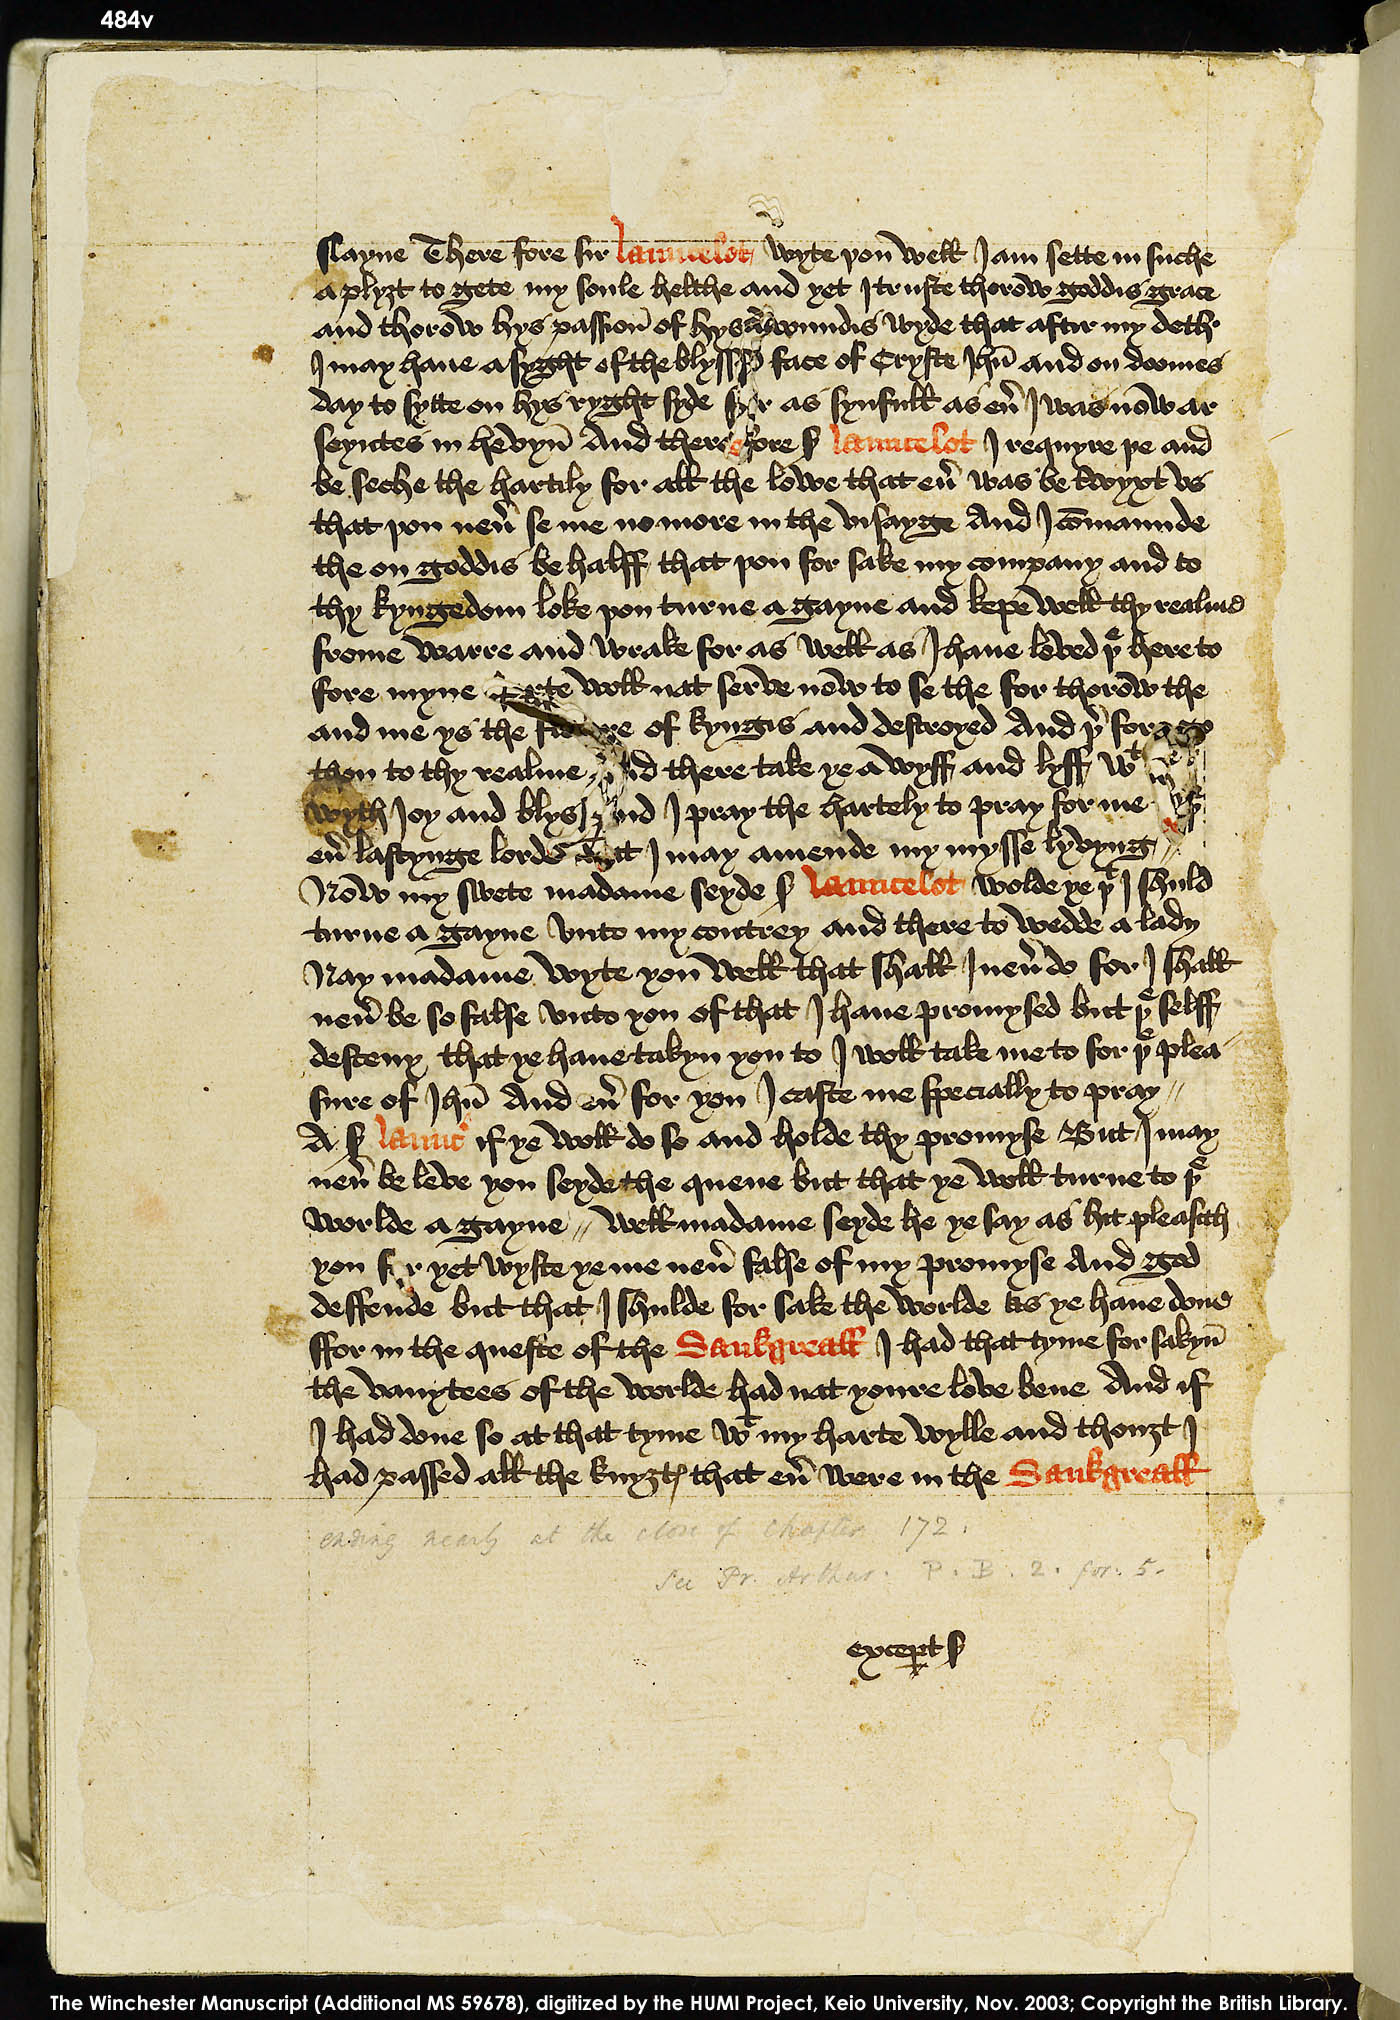 484v
slayne There fore sir Launcelot wyte you well I am sette in suche
a plyȝt to gete my soule helthe and yet I truste thorow goddis grace
and thorow hys passion̄ of hys woundis wyde that aftir my deth
I may haue a syght of the blyssed face of Cryste Ihū and on doomes
day to sytte on hys ryght syde for as synfull as eu̅ I was now ar
seyntes in hevyn̄ And therefore sʳ Launcelot I requyre þe and
be seche the hartily for all the lowe that eu̅ was be twyxt vs
that þou neu̅ se me no more in the visayge And I cōmaunde
the on goddis be halff that þou for sake my company and to
thy kyngedom loke þou turne a gayne and kepe well thy realme
frome warre and wrake for as well as I haue loved þᵉ here to
fore myne harte woll nat serve now to se the for thorow the
and me ys the floure of kyngis and destroyed And þʳ fore go
thou to thy realme and there take ye a wyff and lyff wᵗ
wyth Ioy and blys And I pray the hartely to pray for me
eu̅ lastynge lorde that I may amende my mysse lyvyng //
Now my swete madame seyde sʳ Launcelot wolde ye þᵗ I shuld
turne a gayne vnto my contrey and there to wedde a lady
Nay madame wyte you well that shall I neu̅ do for I shall
neu̅ be so false vnto you of that I haue promysed but þᵉ selff
desteny that ye haue takyn you to I woll take me to for þᵉ plea
sure of Ihū And eu̅ for you I caste me specially to pray //
A sʳ Launc̉ if ye woll do so and holde thy promyse But I may
neu̅ be leve you seyde the quene but that ye woll turne to þᵉ
worlde a gayne // Well madame seyde he ye say as hit pleasith
you for yet wyste ye me neu̅ false of my promyse And god
deffende but that I shulde for sake the worlde as ye haue done
ffor in the queste of the Sankgreall I had that tyme for sakyn̄
the vanytees of the worlde had nat youre love bene And if
I had done so at that tyme wᵗ my harte wylle and thouȝt I
had passed all the knyȝtꝭ that eu̅ were in the Sankgreall
ending nearly at the close of Chapter 172.
See Pr. Arthur. P. B. 2. for. 5.
except sʳ
The Winchester Manuscript (Additional MS 59678), digitized by the HUMI Project, Keio University, Nov. 2003; Copyright the British Library.